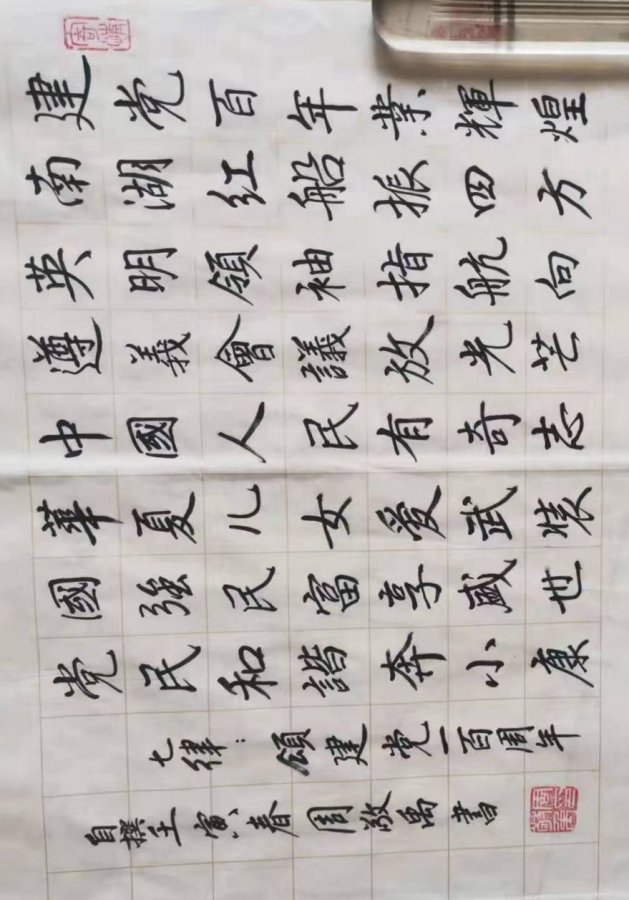 建党百年業輝煌
南湖红船振四方
英明領袖指航向
遵義會議放光芒
中國人民有奇志
華夏儿女愛武装
國強民富享盛世
党民和諧奔小康
七律：頌建党一百周年
自撰壬寅春周敬禹書